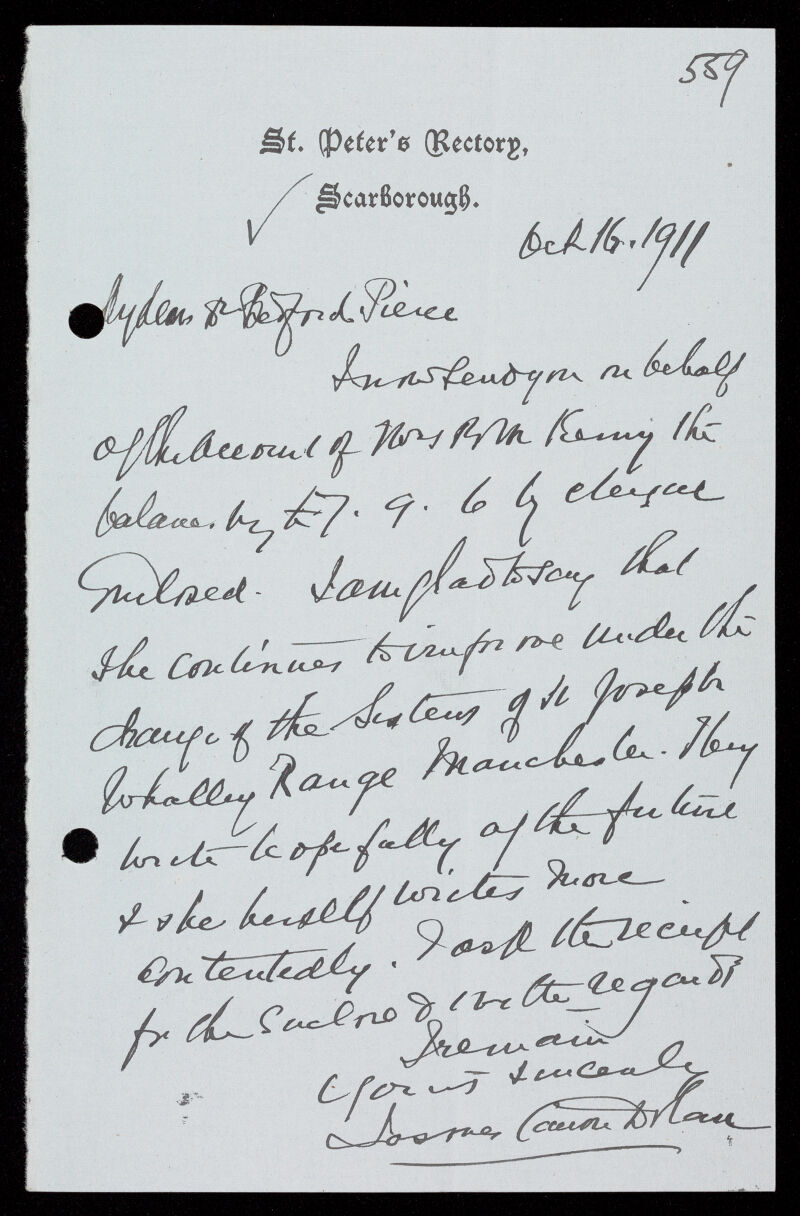 559
St. Peter's Rectory,
Scarborough.
Oct 16. 1911
My dear Dr Bedford Pierce
I now send you on behalf
of the account of the
balance by £7. 9. 6 by cheque
enclosed. I am glad to say that
she continues to improve under the
charge of the Sisters of St Joseph
Whalley Range Manchester. They
write hopefully of the future
& she herself writes more
contentedly. I ask the receipt
for the enclosed & with regards
I remain
Yours sincerely
Canon Dolan